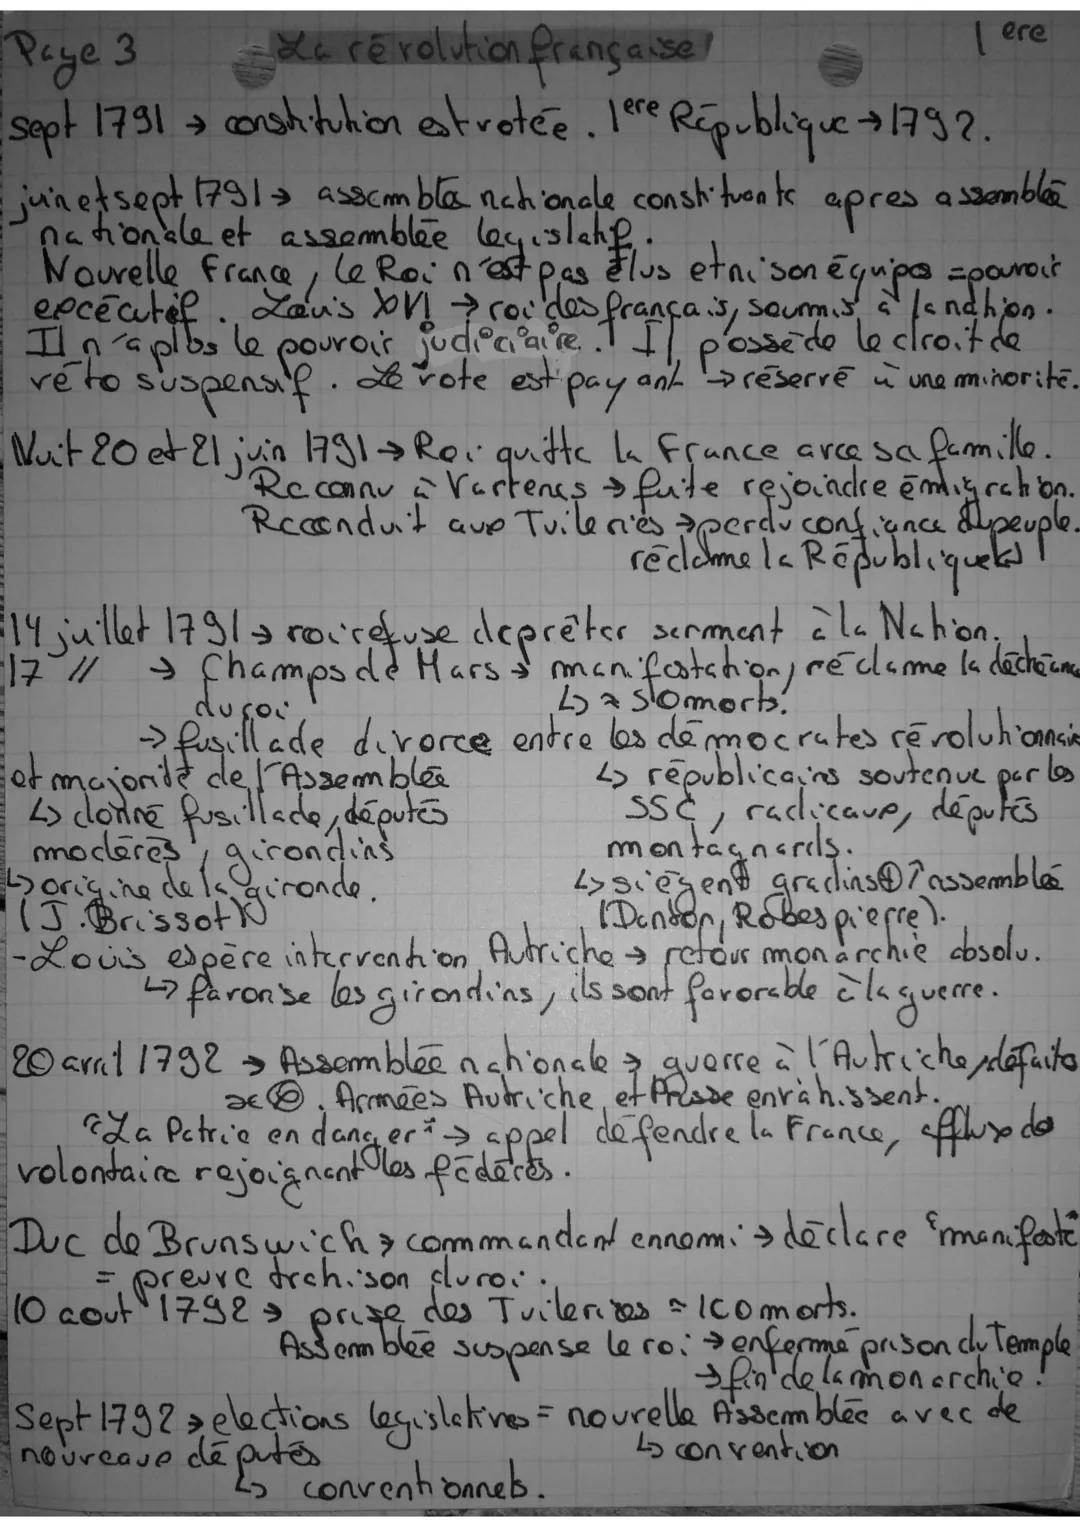 Page 3 La révolution française! 1ere
sept 1791 → constitution est votée. 1ere République → 1792.
juin et sept 1791 → assemblée nationale constituante apres assemblée
nationale et assemblée legislatif.
Nouvelle France, le Roi n'est pas élus et ni son équipe = pouvoir
excécutif. Louis XVI → roi des français, soumis à la nation.
Il n'a plus le pouvoir judiciaire. Il possède le droit de
véto suspensif. Le vote est payant → réservé à une minorité.
Nuit 20 et 21 juin 1791 → Roi quitte la France avec sa famille.
Reconnu à Vartenes → fuite rejoindre émigration.
Reconduit aux Tuileries → perdu confiance du peuple.
réclame la République!
14 juillet 1791 → roi refuse de prêter serment à la Nation.
17 // → Champs de Mars → manifestation, réclame la déchéance
du roi ↳ ≈ 50 morts.
→ fusillade divorce entre les démocrates révolutionnaire
et majorité de l'Assemblée ↳ républicains soutenue par les
↳ donné fusillade, députés SSC, radicaux, députés
modérés, girondins montagnards.
↳ origine de la gironde. ↳ siègent gradins ⊕ ↑ assemblée
(J. Brissot) (Danton, Robespierre).
- Louis espère intervention Autriche → retour monarchie absolu.
↳ favorise les girondins, ils sont favorable à la guerre.
20 avril 1792 → Assemblée nationale → guerre à l'Autriche, défaite
Armées Autriche et Prusse envahissent.
"La Patrie en danger" → appel défendre la France, afflux de
volontaire rejoignant les fédérés.
Duc de Brunswich → commandant ennemi → déclare "manifeste"
= preuve trahison du roi.
10 aout 1792 → prise des Tuileries ≈ 100 morts.
Assemblée suspense le roi → enfermé prison du Temple
→ fin de la monarchie!
Sept 1792 → elections legislatives = nouvelle Assemblée avec de
nouveaux députés ↳ convention
↳ conventionnels.